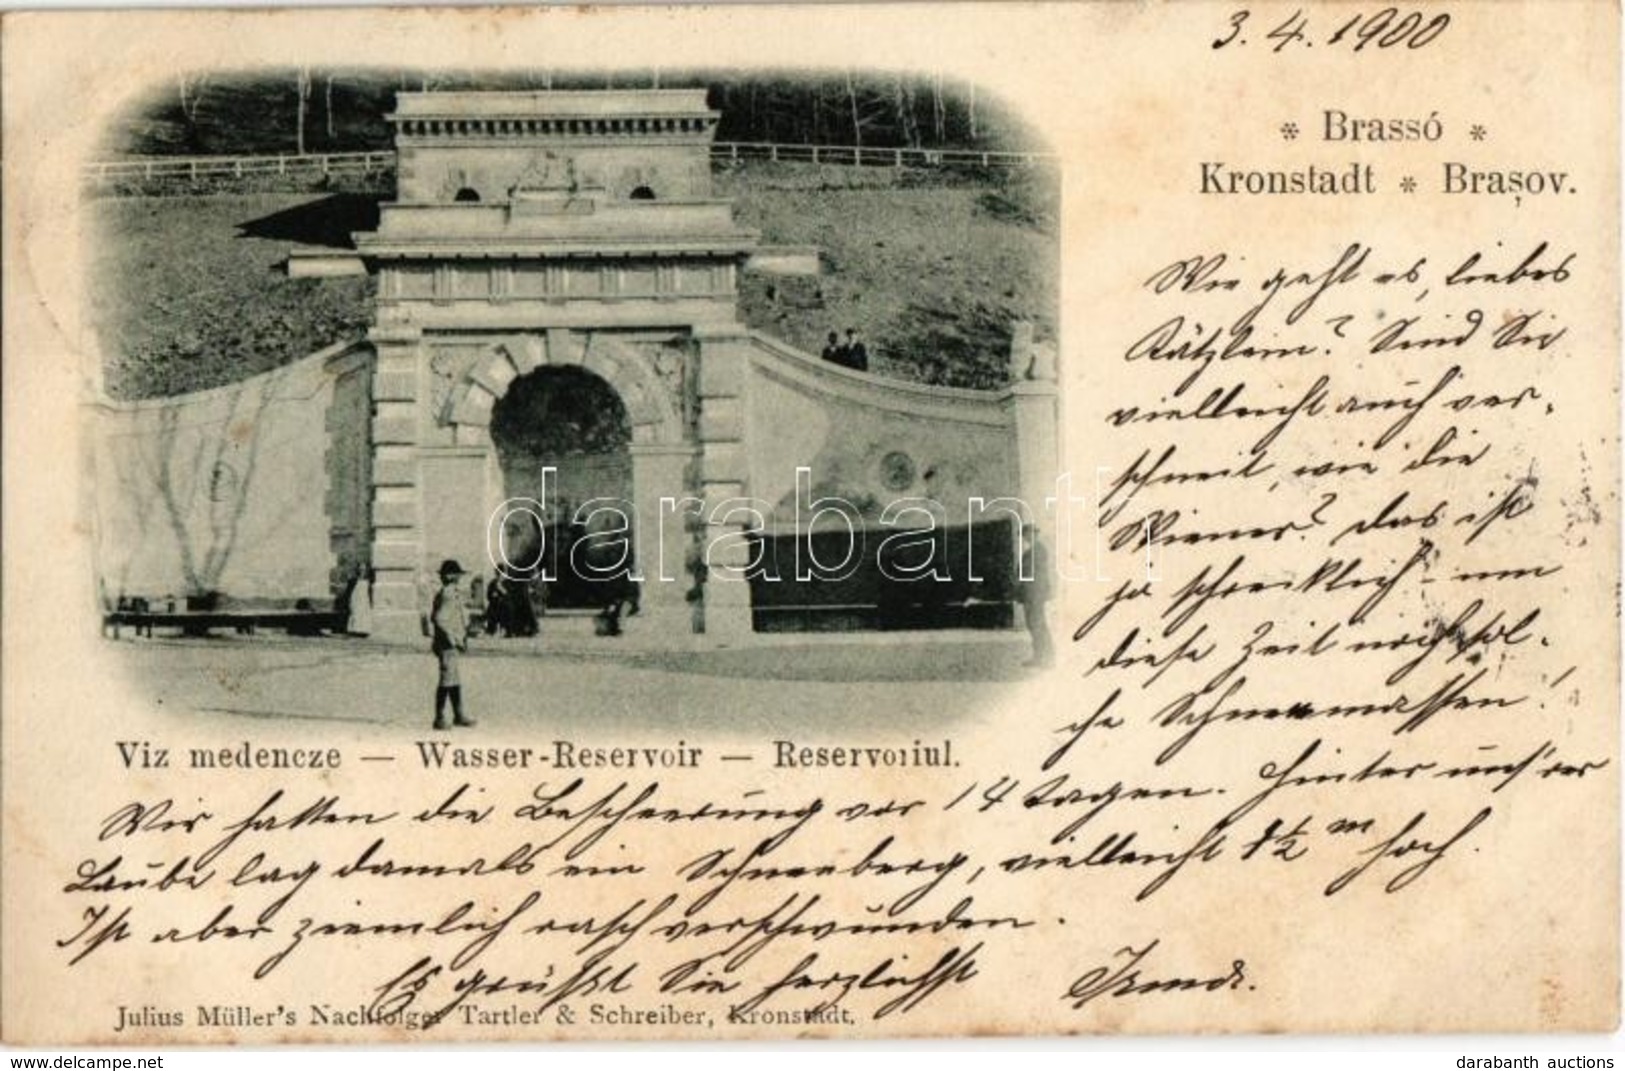 3. 4. 1900
* Brassó *
Kronstadt * Brașov.
Wie geht es, liebes
Kätzlein? Sind Sie
vielleicht auch ver-
schneit, wie die
Wiener? das ist
ja schrecklich – um
diese Zeit noch sol-
che Schneemassen!
Viz medencze — Wasser-Reservoir — Reservoriul.
Wir hatten die Bescheerung vor 14 Tagen. Hinter uns'rer
Laube lag damals ein Schneeberg, vielleicht 1½ m hoch.
Ist aber ziemlich rasch verschwunden.
Es grüßt Sie herzlichst
Julius Müller's Nachfolger Tartler & Schreiber, Kronstadt.
darabanth
https://www.delcampe.net
darabanth auctions